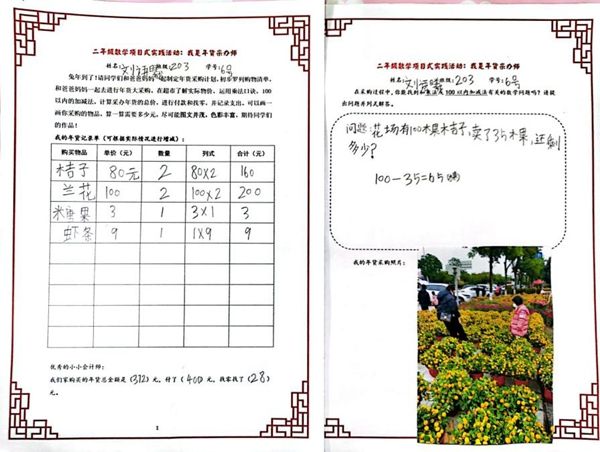 二年级数学项目式实践活动：我是年货采办师
班级：203 学号：6号
兔年到了！请同学们和爸爸妈妈一起制定年货采购计划，初步罗列购物清单，
和爸爸妈妈一起去进行年货大采购。在超市了解实际物价、运用乘法口诀、100
以内的加减法，计算采办年货的总价，进行付款和找零，并记录支出。可以画一
画你采购的物品，算一算需要多少元，尽可能图文并茂，色彩丰富，期待同学们
的作品！
我的年货记录单（可根据实际情况进行增减）：
购买物品 单价（元） 数量 列式 合计（元）
桔子 80元 2 80×2 160
兰花 100 2 100×2 200
米糖果 3 1 3×1 3
虾条 9 1 1×9 9
优秀的小小会计师：
我们家购买的年货总金额是（372）元，付了（400）元，找零找了（28）
元。
1
二年级数学项目式实践活动：我是年货采办师
班级：203 学号：6号
在采购过程中，你能找到和乘法及100以内加减法有关的数学问题吗？请提
出问题并列式解答。
问题：花场有100木果木桔子，卖了35木果，还剩
多少？
100-35=65
我的年货采购照片：